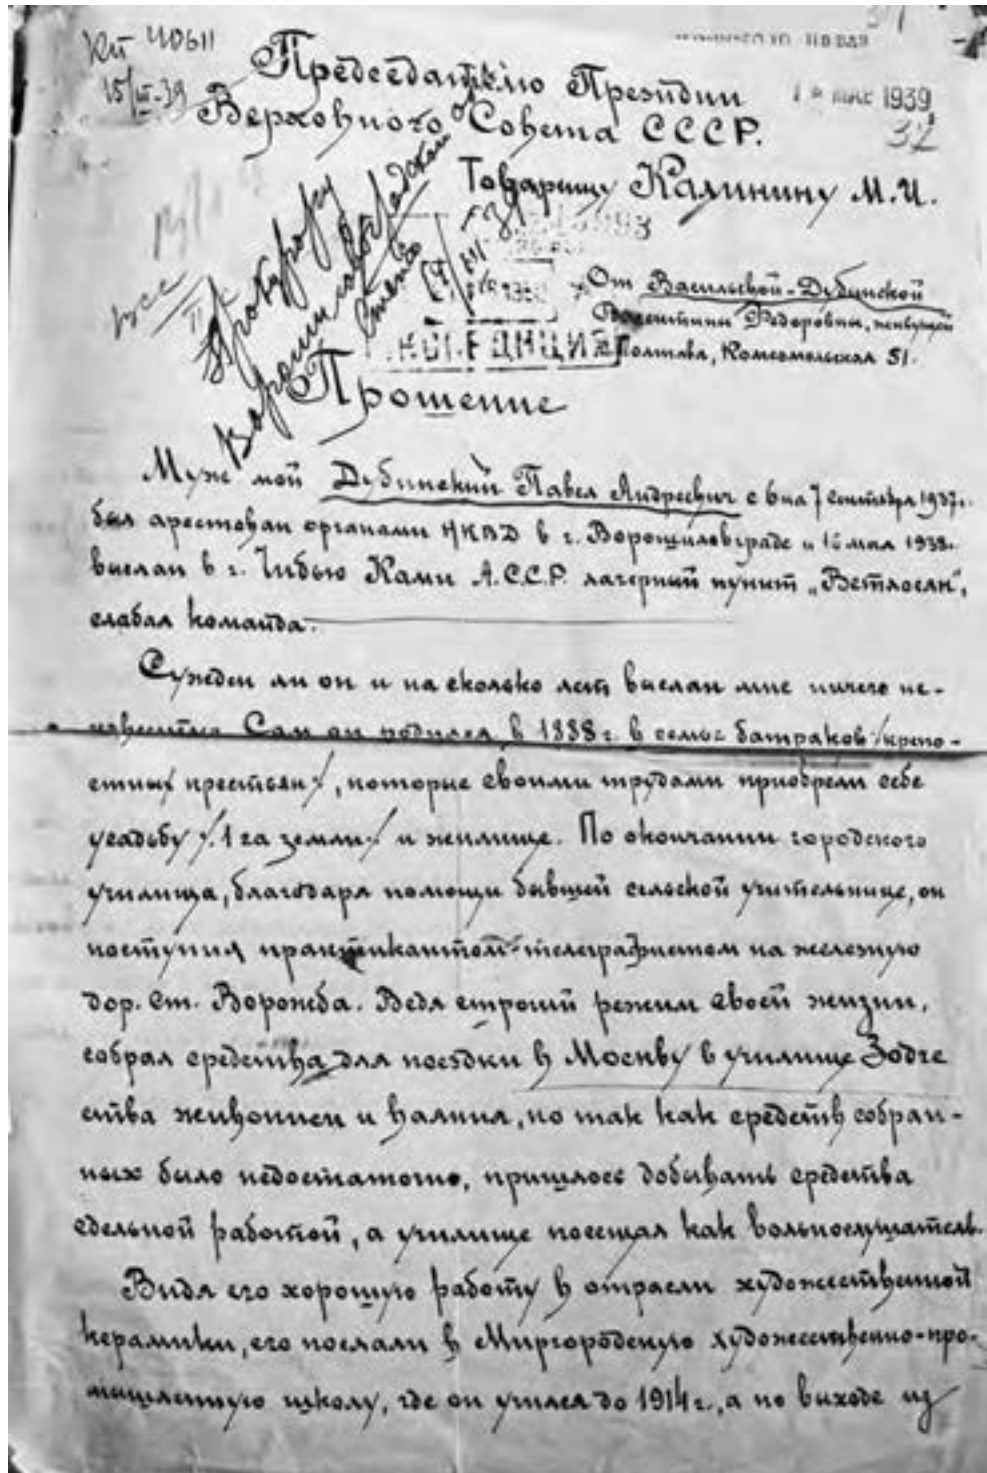 КП 40611
15/III-39
1939
32
Председателю Президии
Верховного Совета СССР.
Товарищу Калинину М.И.
Прокурору
Ворошиловградской
От Васильевой-Дубинской
Валентины Федоровны, живущей
Полтава, Комсомольская 51.
Прошение
Муж мой Дубинский Павел Андреевич с 6 на 7 сентября 1937г.
был арестован органами НКВД в г. Ворошиловграде и 16 мая 1938г.
выслан в г. Чибью Коми А.С.С.Р. лагерный пункт „Ветлосян",
слабая команда.
Сужден ли он и на сколько лет выслан мне ничего не-
известно. Сам он родился в 1888г. в семье батраков /крепо-
стных крестьян/, которые своими трудами приобрели себе
усадьбу /.1 га земли/ и жилище. По окончании городского
училища, благодаря помощи бывшей сельской учительнице, он
поступил практикантом-телеграфистом на железную
дор. ст. Ворожба. Ведя строгий режим своей жизни,
собрал средства для поездки в Москву в училище Зодче
ства живописи и ваяния, но так как средств собран-
ных было недостаточно, пришлось добывать средства
сдельной работой, а училище посещал как вольнослушатель.
Видя его хорошую работу в отрасли художественной
керамики, его послали в Миргородскую художественно-про-
мышленную школу, где он учился до 1914г., а по выходе из